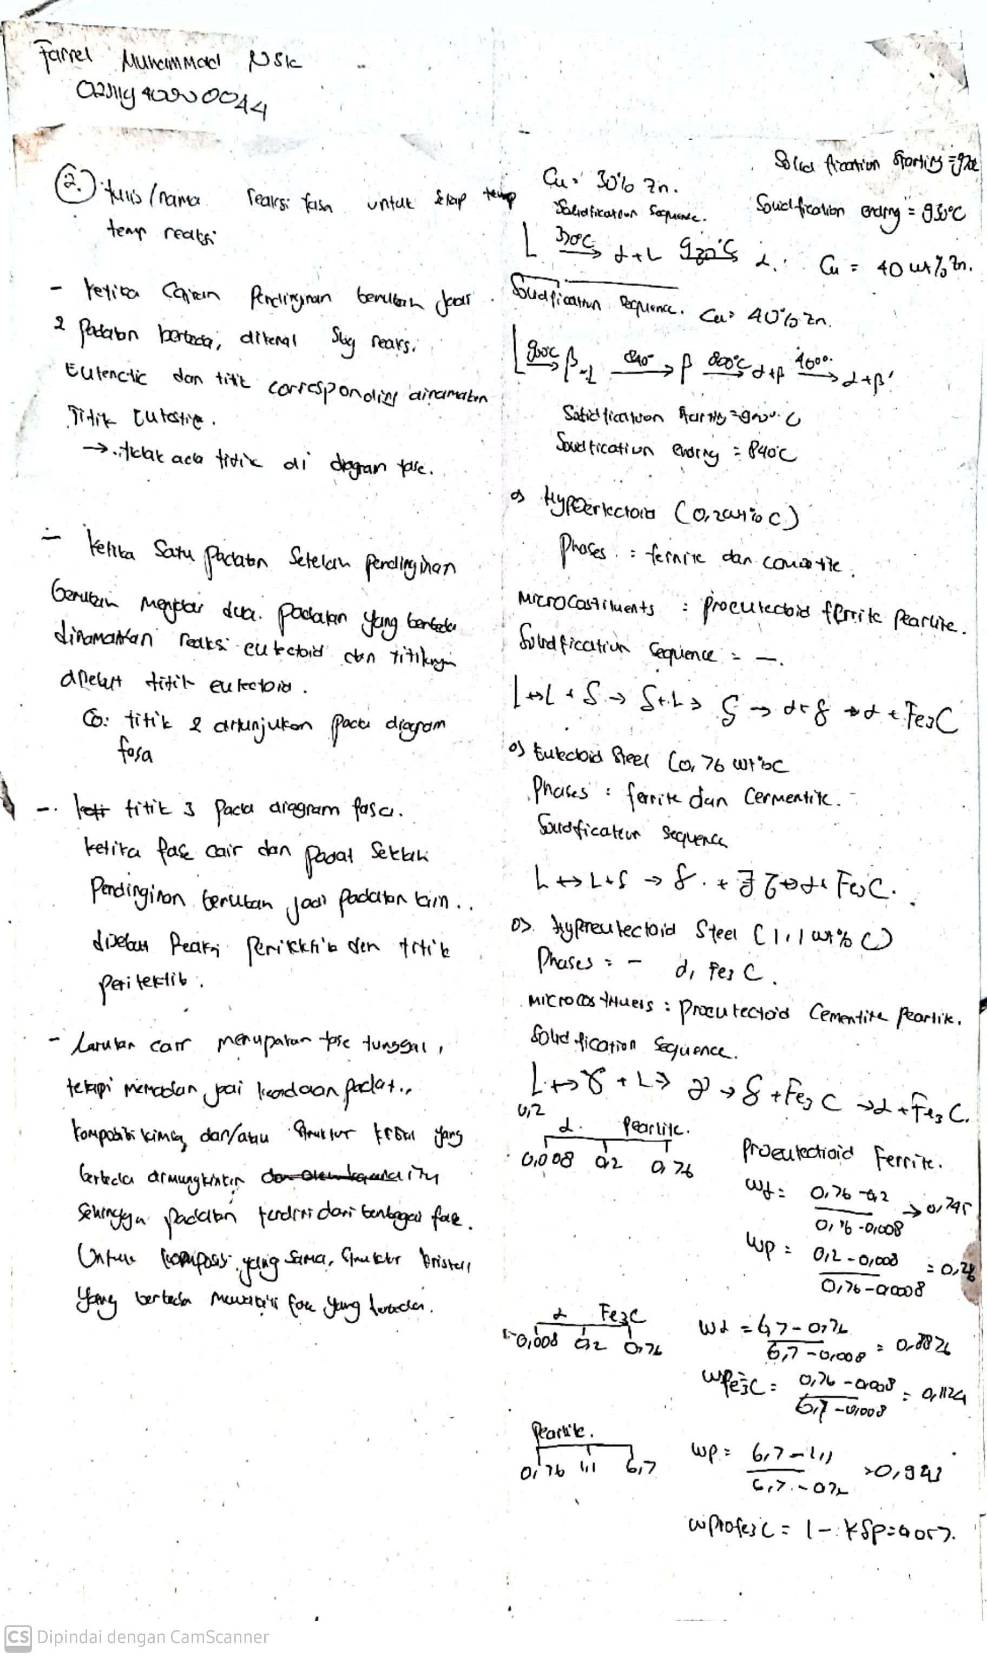 Farrel Muhammad NSK
2.) tulis/nama reaksi fasa untuk setiap temp
temp reaksi
- Ketika Cairan Pendinginan berubah jadi
2 Padatan berbeda, dikenal sbg reaksi
Eutenctic dan titik corresponding dinamakan
Titik Eutectic.
→ tidak ada titik di diagram fase.
- Ketika Satu Padatan Setelah Pendinginan
berubah menjadi dua padatan yang berbeda
dinamakan reaksi eutectoid dan titiknya
disebut titik eutectoid.
Co: titik 2 ditunjukan pada diagram
fasa
- titik 3 Pada diagram fasa.
ketika fase cair dan padat Setelah
Pendinginan berubah jadi Padatan lain..
disebut Reaksi Peritektik dan titik
peritektik.
- Larutan cair merupakan fase tunggal,
tetapi memadan jadi keadaan padat..
Komposisi kimia, dan/atau Struktur kristal yang
berbeda dimungkinkan
Sehingga padatan terdiri dari berbagai fase.
Untuk komposisi yang sama, Struktur kristal
yang berbeda mewakili fase yang berbeda.
Cu: 30% Zn.
Solidification Starting =
Solidification Sequence.
Solidification ending = 930°C
L → α+L 930°C → α
Cu = 40 wt% Zn.
Solidification Sequence. Cu: 40% Zn.
L 900C → β+L 840° → β 800°C → α+β 400° → α+β'
Solidification Starting = 900°C
Solidification ending = 840°C
o) Hypoeutectoid (0,2wt% C)
Phases : ferrite dan cementite.
Microcostituents : proeutectoid ferrite Pearlite.
Solidification Sequence = -.
o) Eutectoid Steel (0,76 wt%C
Phases : ferrite dan Cermentite.
Solidification Sequence
o) Hypereutectoid Steel (1,1 wt% C)
Phases = - α, Fe3 C.
Microcostituens : Proeutectoid Cementite Pearlite.
Solidification Sequence.
L ↔ γ + L → γ → γ + Fe3 C → α + Fe3 C.
0,2
α Pearlite.
0,008 0,2 0,76
Proeutectioid Ferrite.
Wα = 0,76 - 0,2
0,76 - 0,008 → 0,745
Wp = 0,2 - 0,008
0,76 - 0,008
α Fe3C
0,008 0,2 0,76
Wα = 6,7 - 0,76
6,7 - 0,008 = 0,8876
WFe3C = 0,76 - 0,008
6,7 - 0,008 = 0,1124
Pearlite.
0,76 1,1 6,7
Wp = 6,7 - 1,1
6,7 - 0,76
CS Dipindai dengan CamScanner